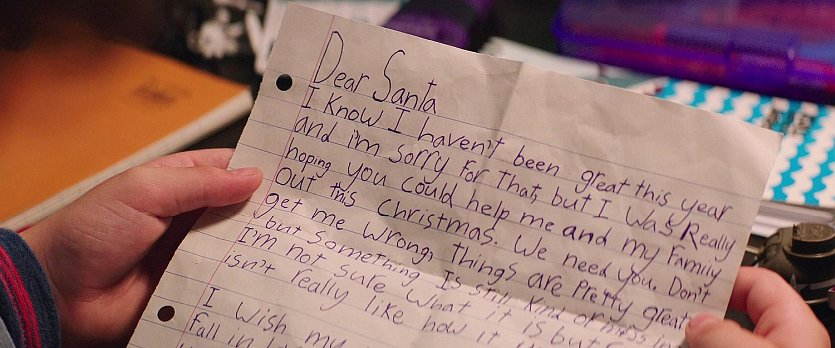 Dear Santa
I Know I haven't been great this year
and i'm sorry For That, but I was Really
hoping you could help me and my Family
out this christmas. We need you. Don't
get me wrong, Things are pretty great
but something Is still kind of
I'm not sure what it is but
isn't really like how it
I wish my
Fall in